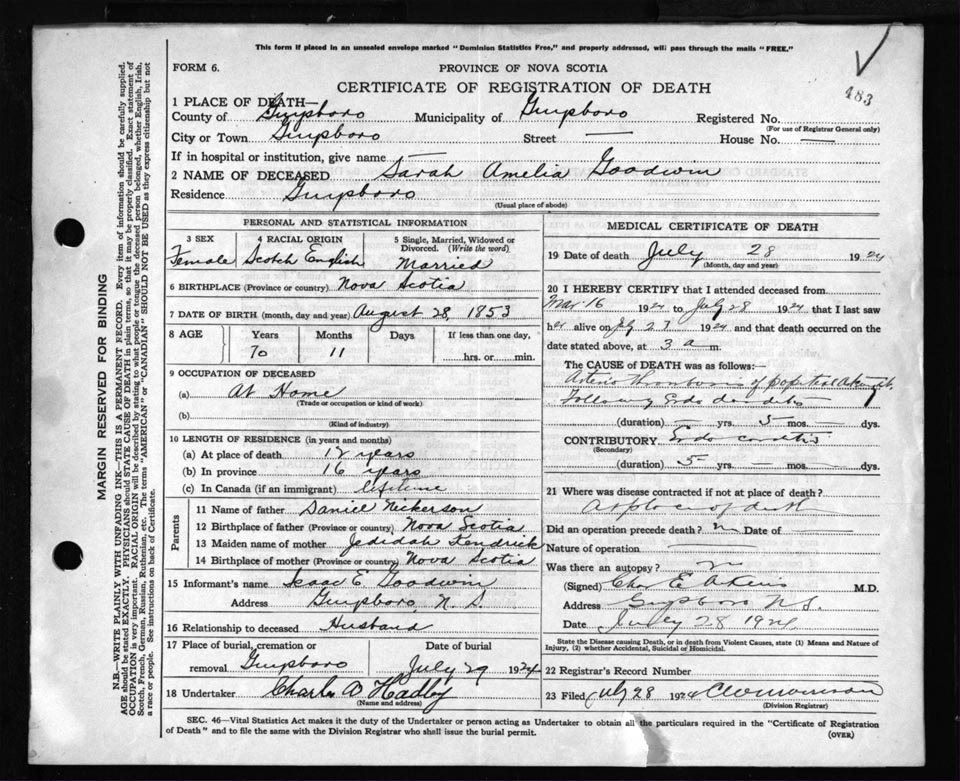 This form if placed in an unsealed envelope marked "Dominion Statistics Free," and properly addressed, will pass through the mails "FREE."
FORM 6.
PROVINCE OF NOVA SCOTIA
483
CERTIFICATE OF REGISTRATION OF DEATH
1 PLACE OF DEATH—
County of Guysboro Municipality of Guysboro Registered No.
(For use of Registrar General only)
City or Town Guysboro Street — House No. —
If in hospital or institution, give name —
2 NAME OF DECEASED Sarah Amelia Goodwin
Residence Guysboro
(Usual place of abode)
PERSONAL AND STATISTICAL INFORMATION
3 SEX 4 RACIAL ORIGIN 5 Single, Married, Widowed or Divorced. (Write the word)
Female Scotch English Married
6 BIRTHPLACE (Province or country) Nova Scotia
7 DATE OF BIRTH (month, day and year) August 28, 1853
8 AGE Years Months Days If less than one day,
70 11 hrs. or min.
9 OCCUPATION OF DECEASED
(a) At Home
(Trade or occupation or kind of work)
(b)
(Kind of industry)
10 LENGTH OF RESIDENCE (in years and months)
(a) At place of death 12 years
(b) In province 16 years
(c) In Canada (if an immigrant) lifetime
Parents
11 Name of father Daniel Nickerson
12 Birthplace of father (Province or country) Nova Scotia
13 Maiden name of mother Jedidah Kendrick
14 Birthplace of mother (Province or country) Nova Scotia
15 Informant's name Isaac E. Goodwin
Address Guysboro N. S.
16 Relationship to deceased Husband
17 Place of burial, cremation or removal Guysboro Date of burial July 29 1924
18 Undertaker Charles Hadley
(Name and address)
MEDICAL CERTIFICATE OF DEATH
19 Date of death July 28 1924
(Month, day and year)
20 I HEREBY CERTIFY that I attended deceased from
Mar. 16 1924 to July 28 1924 that I last saw
her alive on July 27 1924 and that death occurred on the
date stated above, at 3 a m.
The CAUSE OF DEATH was as follows:—
Arterio Thrombosis of popliteal
Following Endocarditis
(duration) yrs. 5 mos. — dys.
CONTRIBUTORY Endocarditis
(Secondary)
(duration) 5 yrs. — mos. — dys.
21 Where was disease contracted if not at place of death?
At place of death
Did an operation precede death? no Date of
Nature of operation
Was there an autopsy? no
(Signed) Chas E Akins M.D.
Address Guysboro N.S.
Date July 28 1924
State the Disease causing Death, or in death from Violent Causes, state (1) Means and Nature of Injury, (2) whether Accidental, Suicidal or Homicidal.
22 Registrar's Record Number
23 Filed July 28 1924 C W Morrison
(Division Registrar)
SEC. 46—Vital Statistics Act makes it the duty of the Undertaker or person acting as Undertaker to obtain all the particulars required in the "Certificate of Registration
of Death" and to file the same with the Division Registrar who shall issue the burial permit.
(OVER)
MARGIN RESERVED FOR BINDING
N.B.—WRITE PLAINLY WITH UNFADING INK—THIS IS A PERMANENT RECORD. Every item of information should be carefully supplied.
AGE should be stated EXACTLY. PHYSICIANS should STATE CAUSE OF DEATH in plain terms, so that it may be properly classified. Exact statement of
OCCUPATION is very important. RACIAL ORIGIN will be described by stating to what people or tongue the deceased person belonged, whether English, Irish,
Scotch, French, German, Russian, Ruthenian, etc. The terms "AMERICAN" or "CANADIAN" SHOULD NOT BE USED as they express citizenship but not
a race or people. See instructions on back of Certificate.